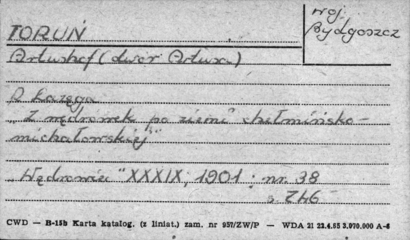 woj.
Bydgoszcz
TORUŃ
Artushof (dwór Artura)
"Z wędrówek po ziemi chełmińsko-
michałowskiej"
"Wędrowiec" XXXIX, 1901, nr. 38
s. 746
CWD — B-15b Karta katalog. (z liniat.) zam. nr 957/ZW/P — WDA 21 22.4.55 3.070.000 A-6